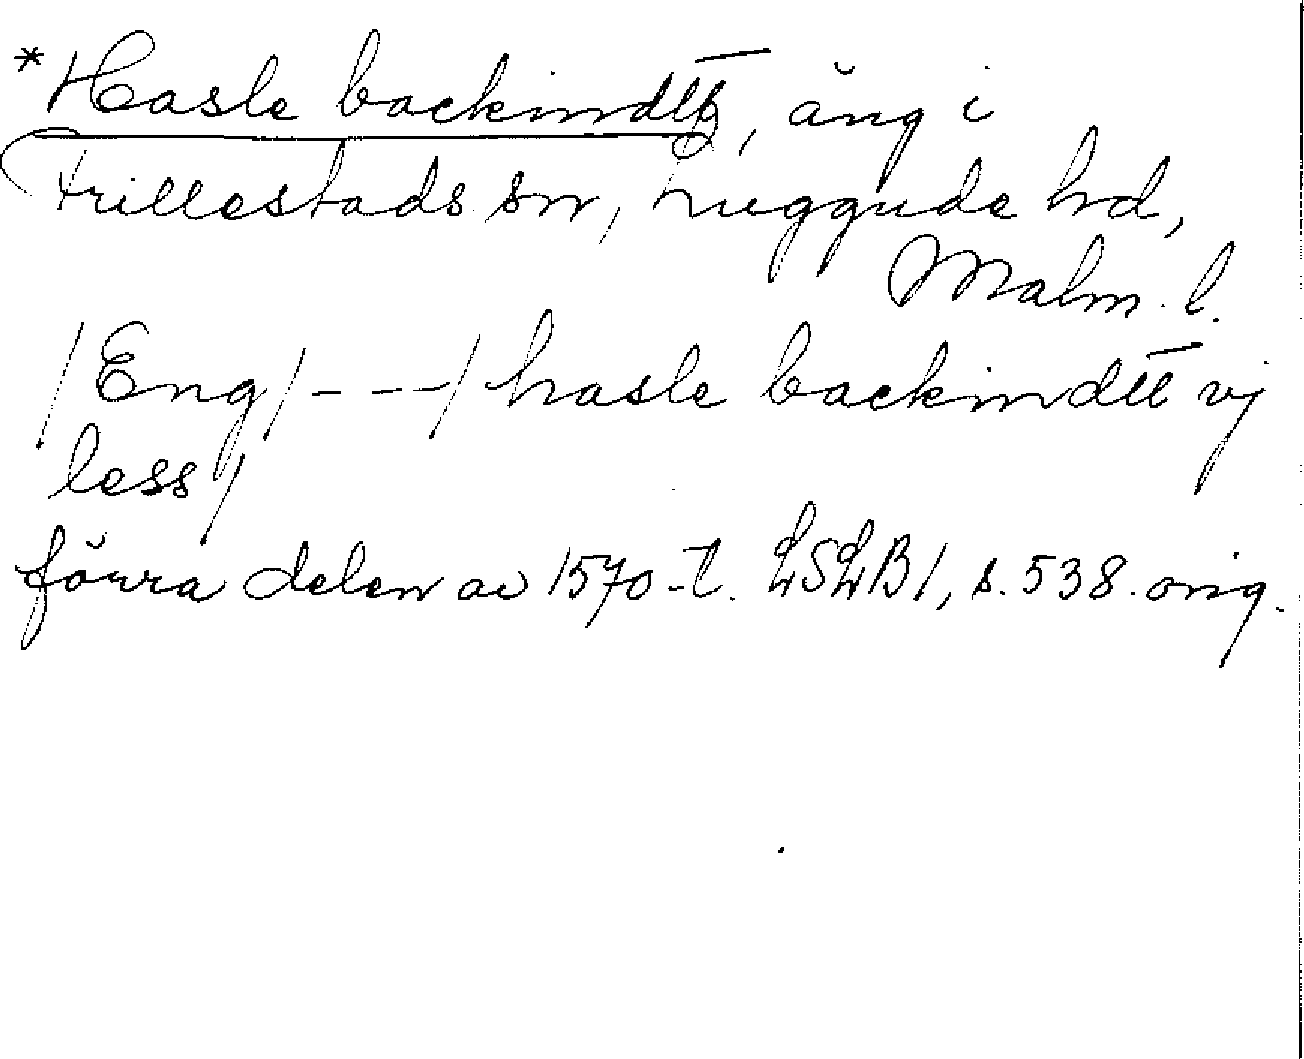 *Hasle backindtt̅, äng i
Frillestads sn, Luggude hd,
Malm. l.
/Eng/ - - - / hasle backindtt̅ vj
less /
förra delen av 1570-t. LSLB1, s. 538. orig.